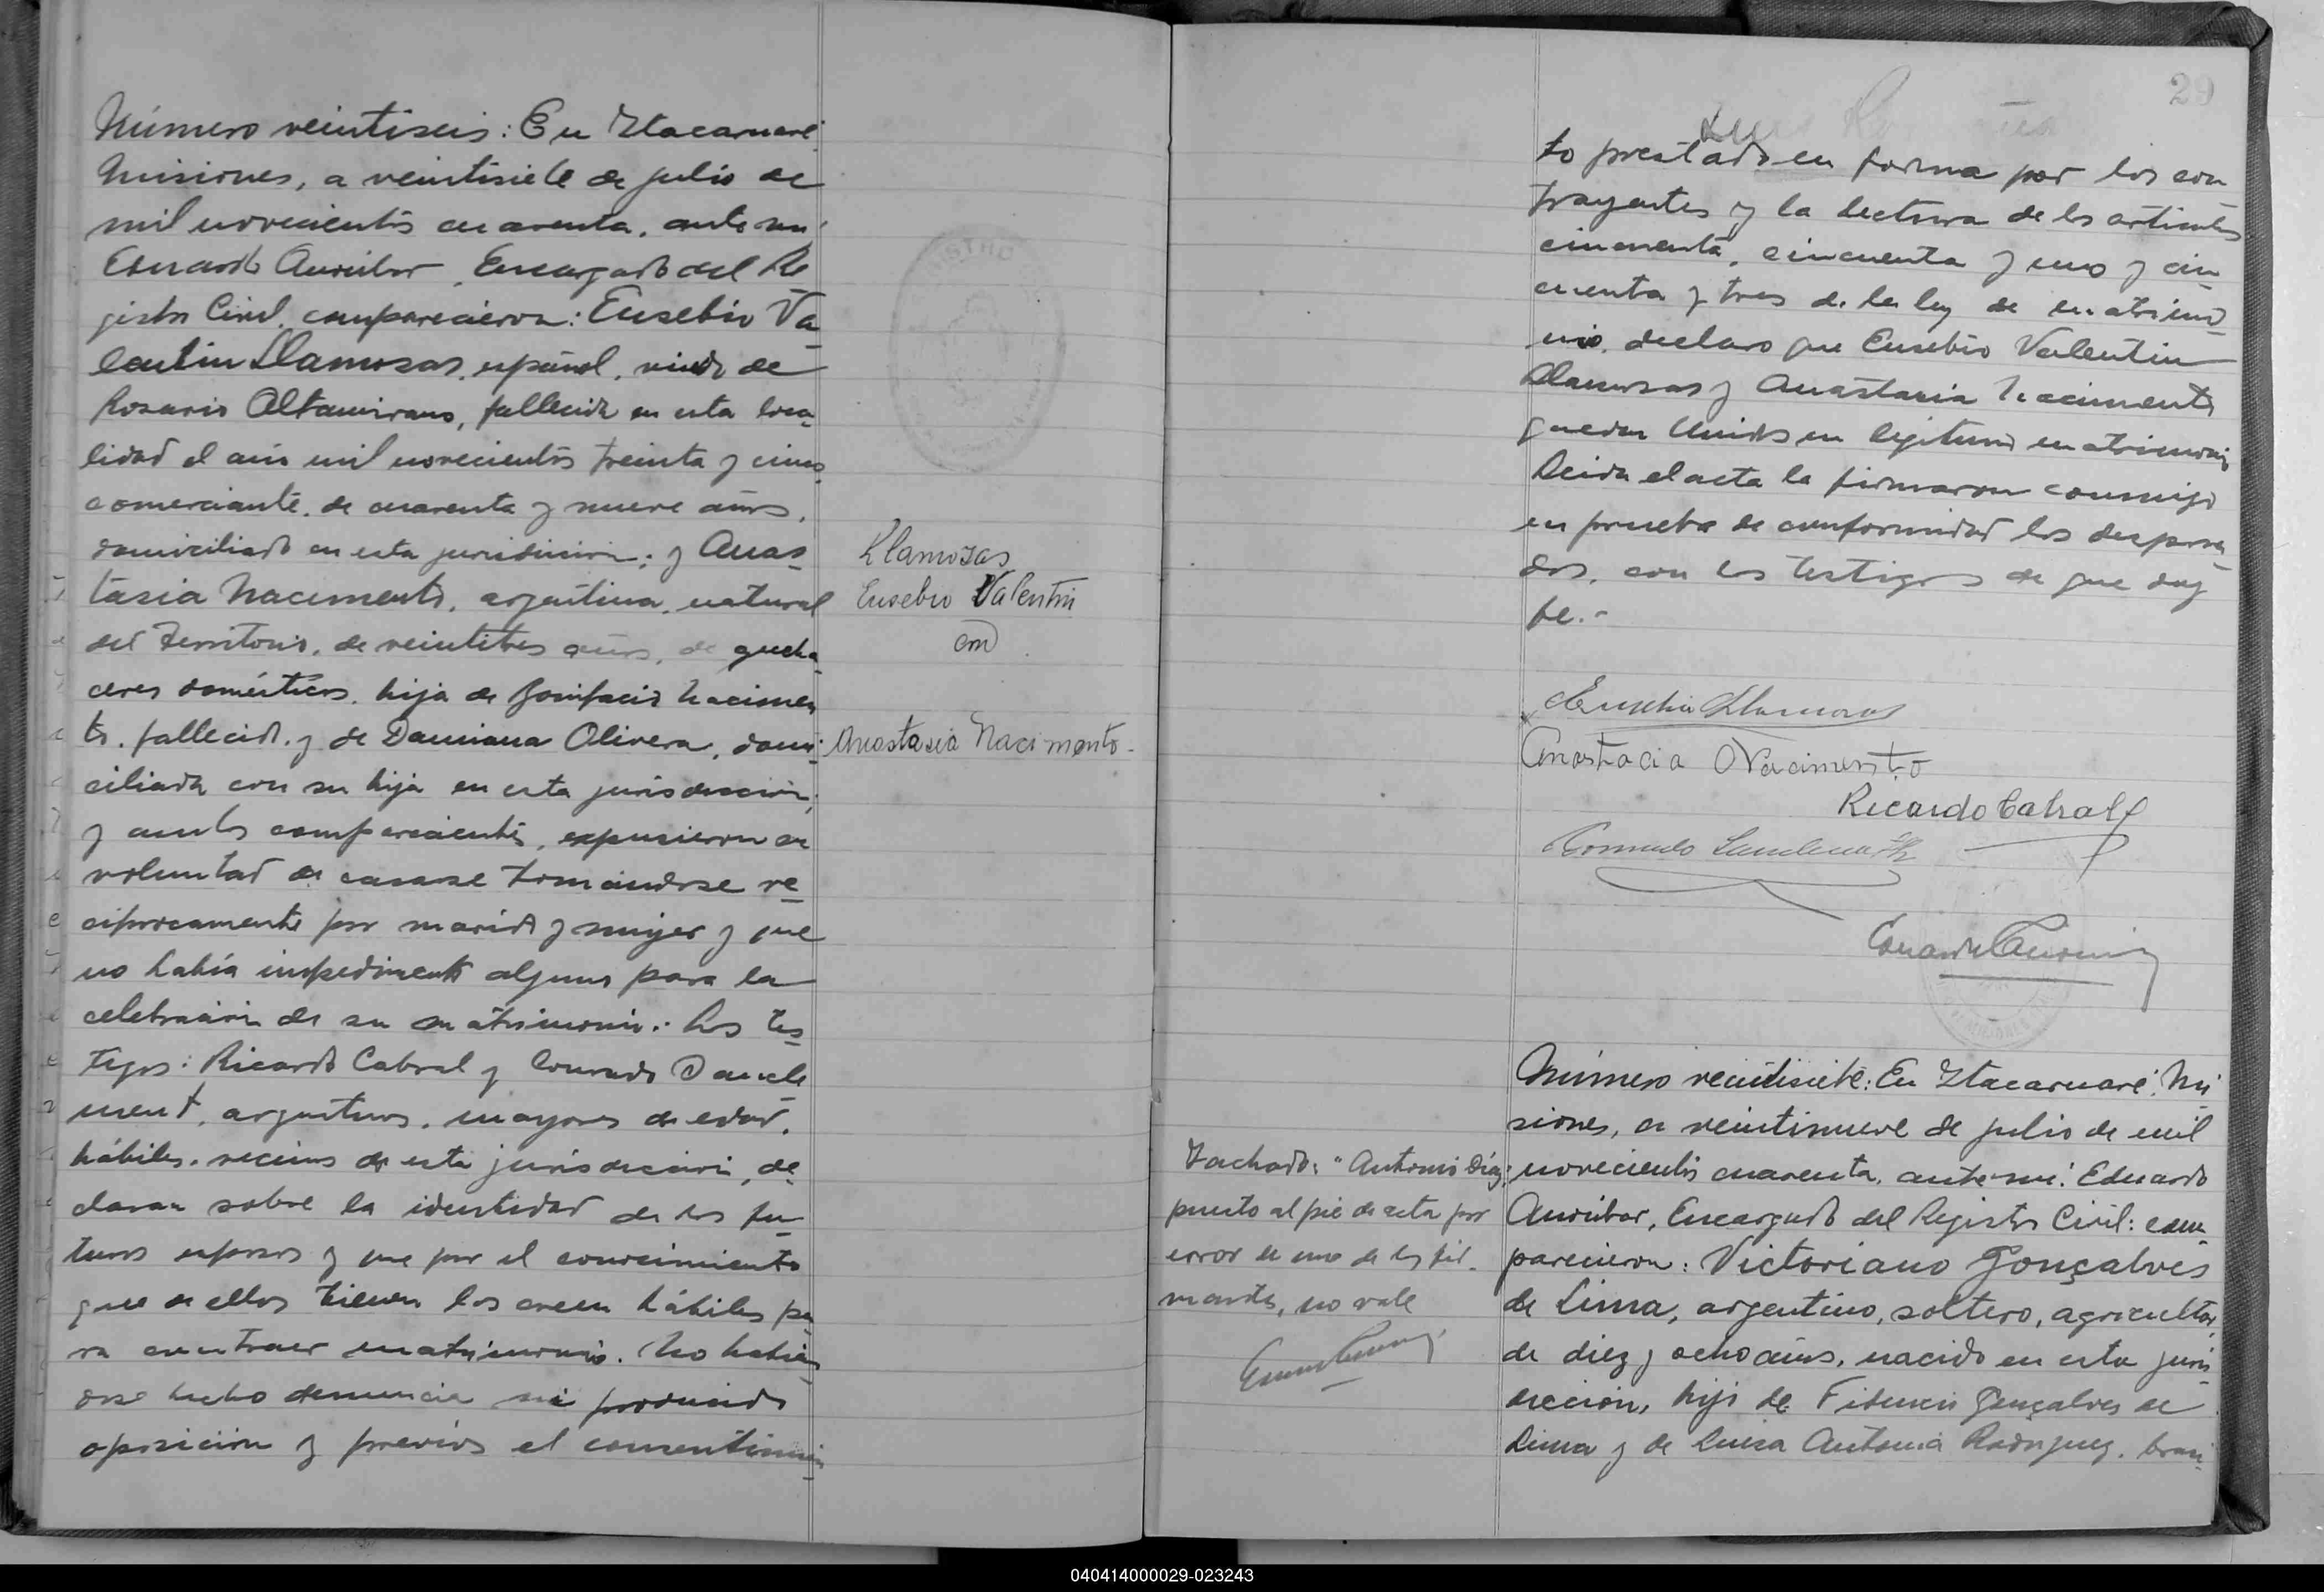 Número veintiseis: En Itacaruaré
Misiones, a veintisiete de julio de
mil novecientos cuarenta, ante mí
Eduardo Auxibar, Encargado del Re
gistro Civil, comparecieron: Eusebio Va
lentin Llamosas, español, viudo de
Rosario Altamirano, fallecida en esta loca
lidad el año mil novecientos treinta y cinco
comerciante, de cuarenta y nueve años,
domiciliado en esta jurisdicción; y Anas
tasia Nacimento, argentina, natural
del Territorio, de veintitres años, de queha
ceres domésticos, hija de Bonifacio Nacimen
to, fallecido, y de Damiana Olivera, domi
ciliada con su hija en esta jurisdicción;
y ambos comparecientes, expusieron su
voluntad de casarse tomándose re
ciprocamente por marido y mujer y que
no había impedimento alguno para la
celebración de su matrimonio.- Los tes
tigos: Ricardo Cabral y
argentinos, mayores de edad,
hábiles, vecinos de esta jurisdicción, de
claran sobre la identidad de los fu
turos esposos y que por el conocimiento
que de ellos tienen los creen hábiles pa
ra contraer matrimonio. No habien
dose hecho denuncia ni producido
oposición y previos el consentimien
Llamosas
Eusebio Valentin
con
Anastasia Nacimento-
29
to prestado en forma por los con
trayentes y la lectura de los artículos
cincuenta, cincuenta y uno y cin
cuenta y tres de la ley de matrimo
nio, declaro que Eusebio Valentin
Llamosas y Anastasia Nacimento
quedan Unidos en legítimo matrimonio
Leida el acta la firmaron conmigo
en prueba de conformidad los desposa
dos, con los testigos de que doy
fe.-
Eusebio Llamosas
Anastacia Nacimento
Ricardo Cabral
Número veintisiete: En Itacaruaré, Mi
siones, a veintinueve de julio de mil
novecientos cuarenta, ante mí: Eduardo
Auxibar, Encargado del Registro Civil: com
parecieron: Victoriano Gonçalves
de Lima, argentino, soltero, agricultor,
de diez y ocho años, nacido en esta juris
dicción, hijo de Gonçalves de
Lima y de Luisa Antonia Rodriguez, brasi
Tachado: "Antonio Diaz,
puesto al pie de acta por
error de uno de los fir-
mantes, no vale
040414000029-023243